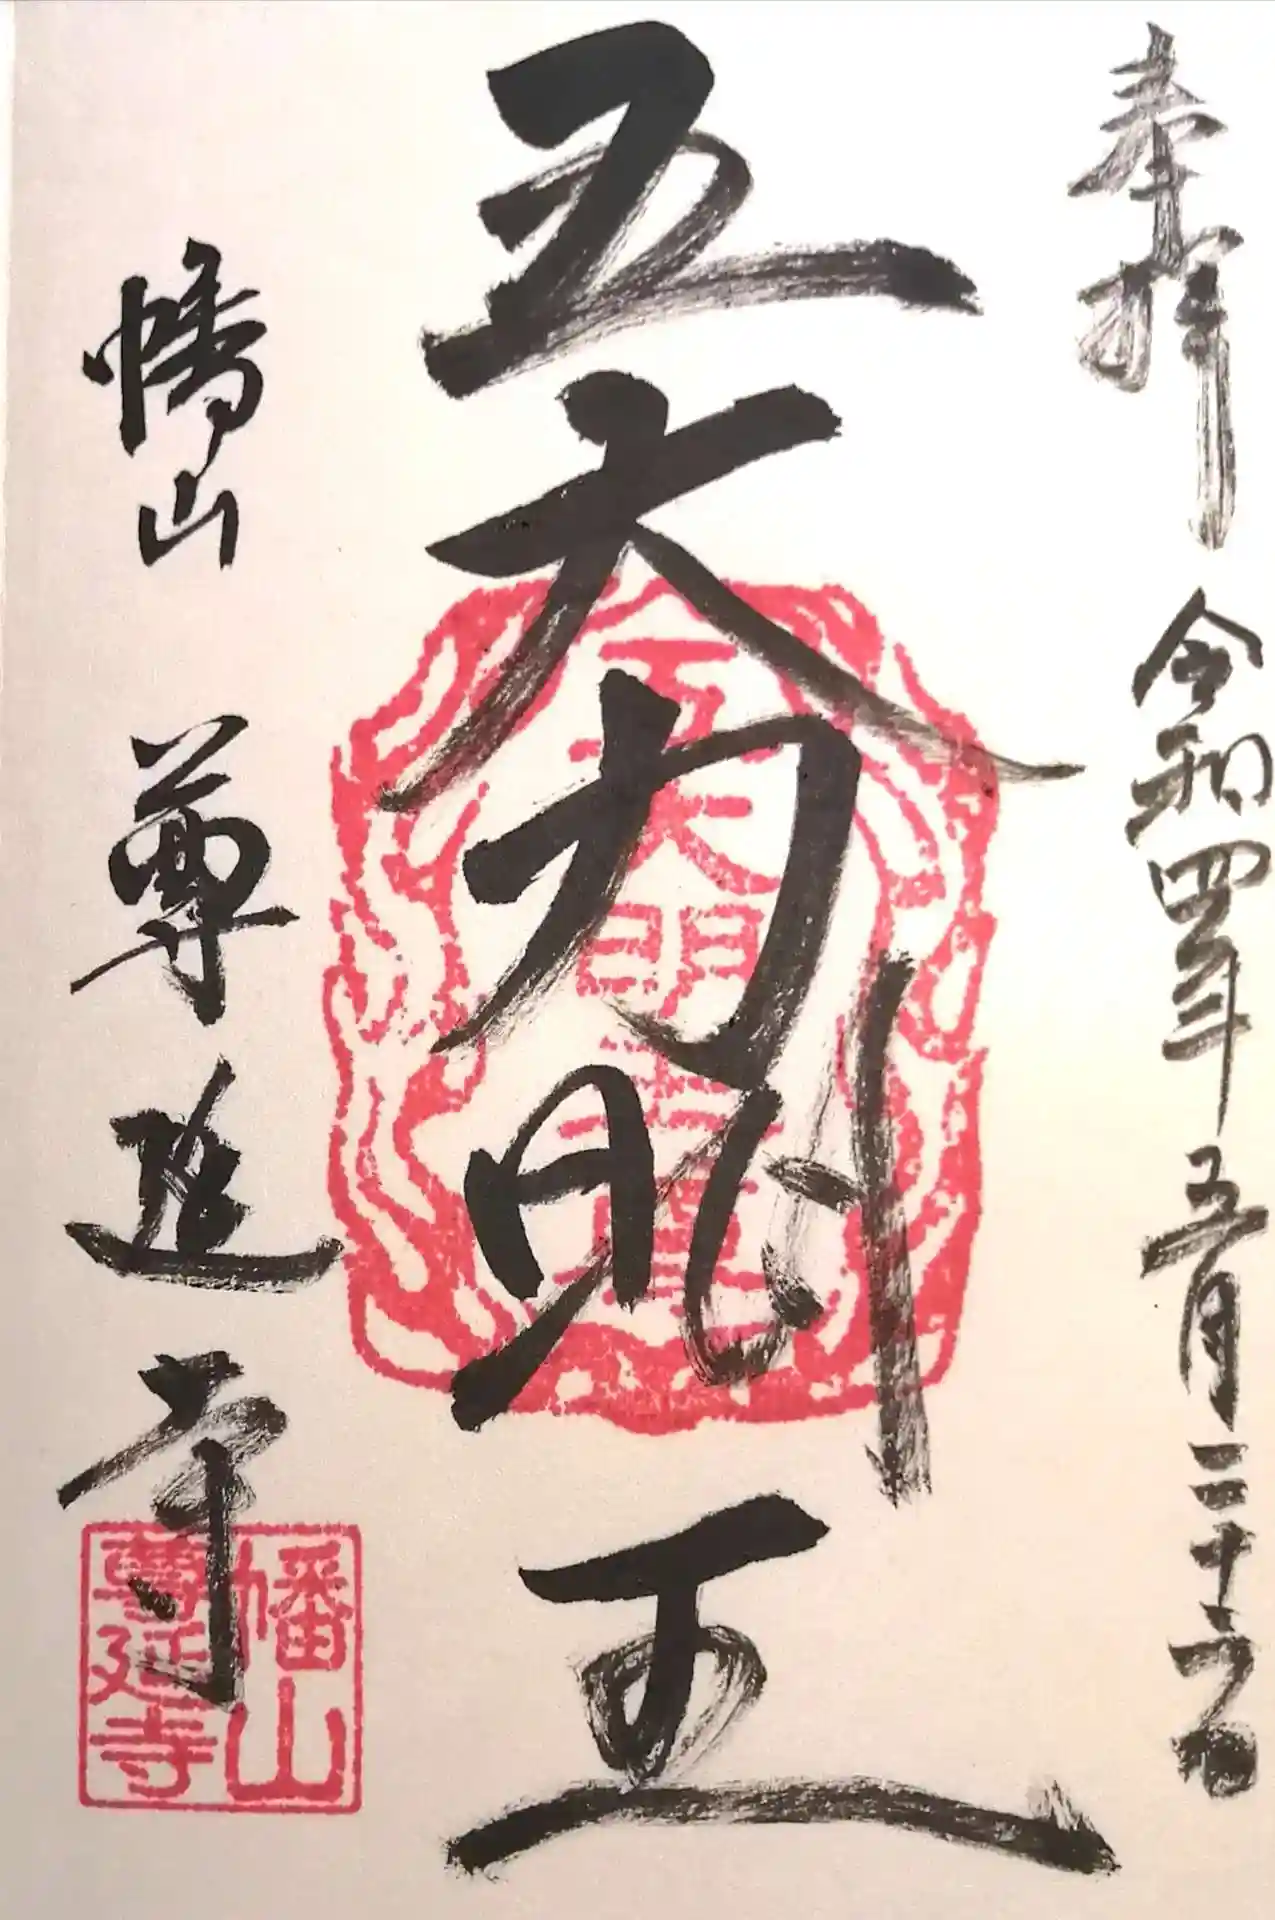 奉拝 令和四年五月二十六日
五大力明王
五大明
幡山 尊延寺
幡山
尊延寺